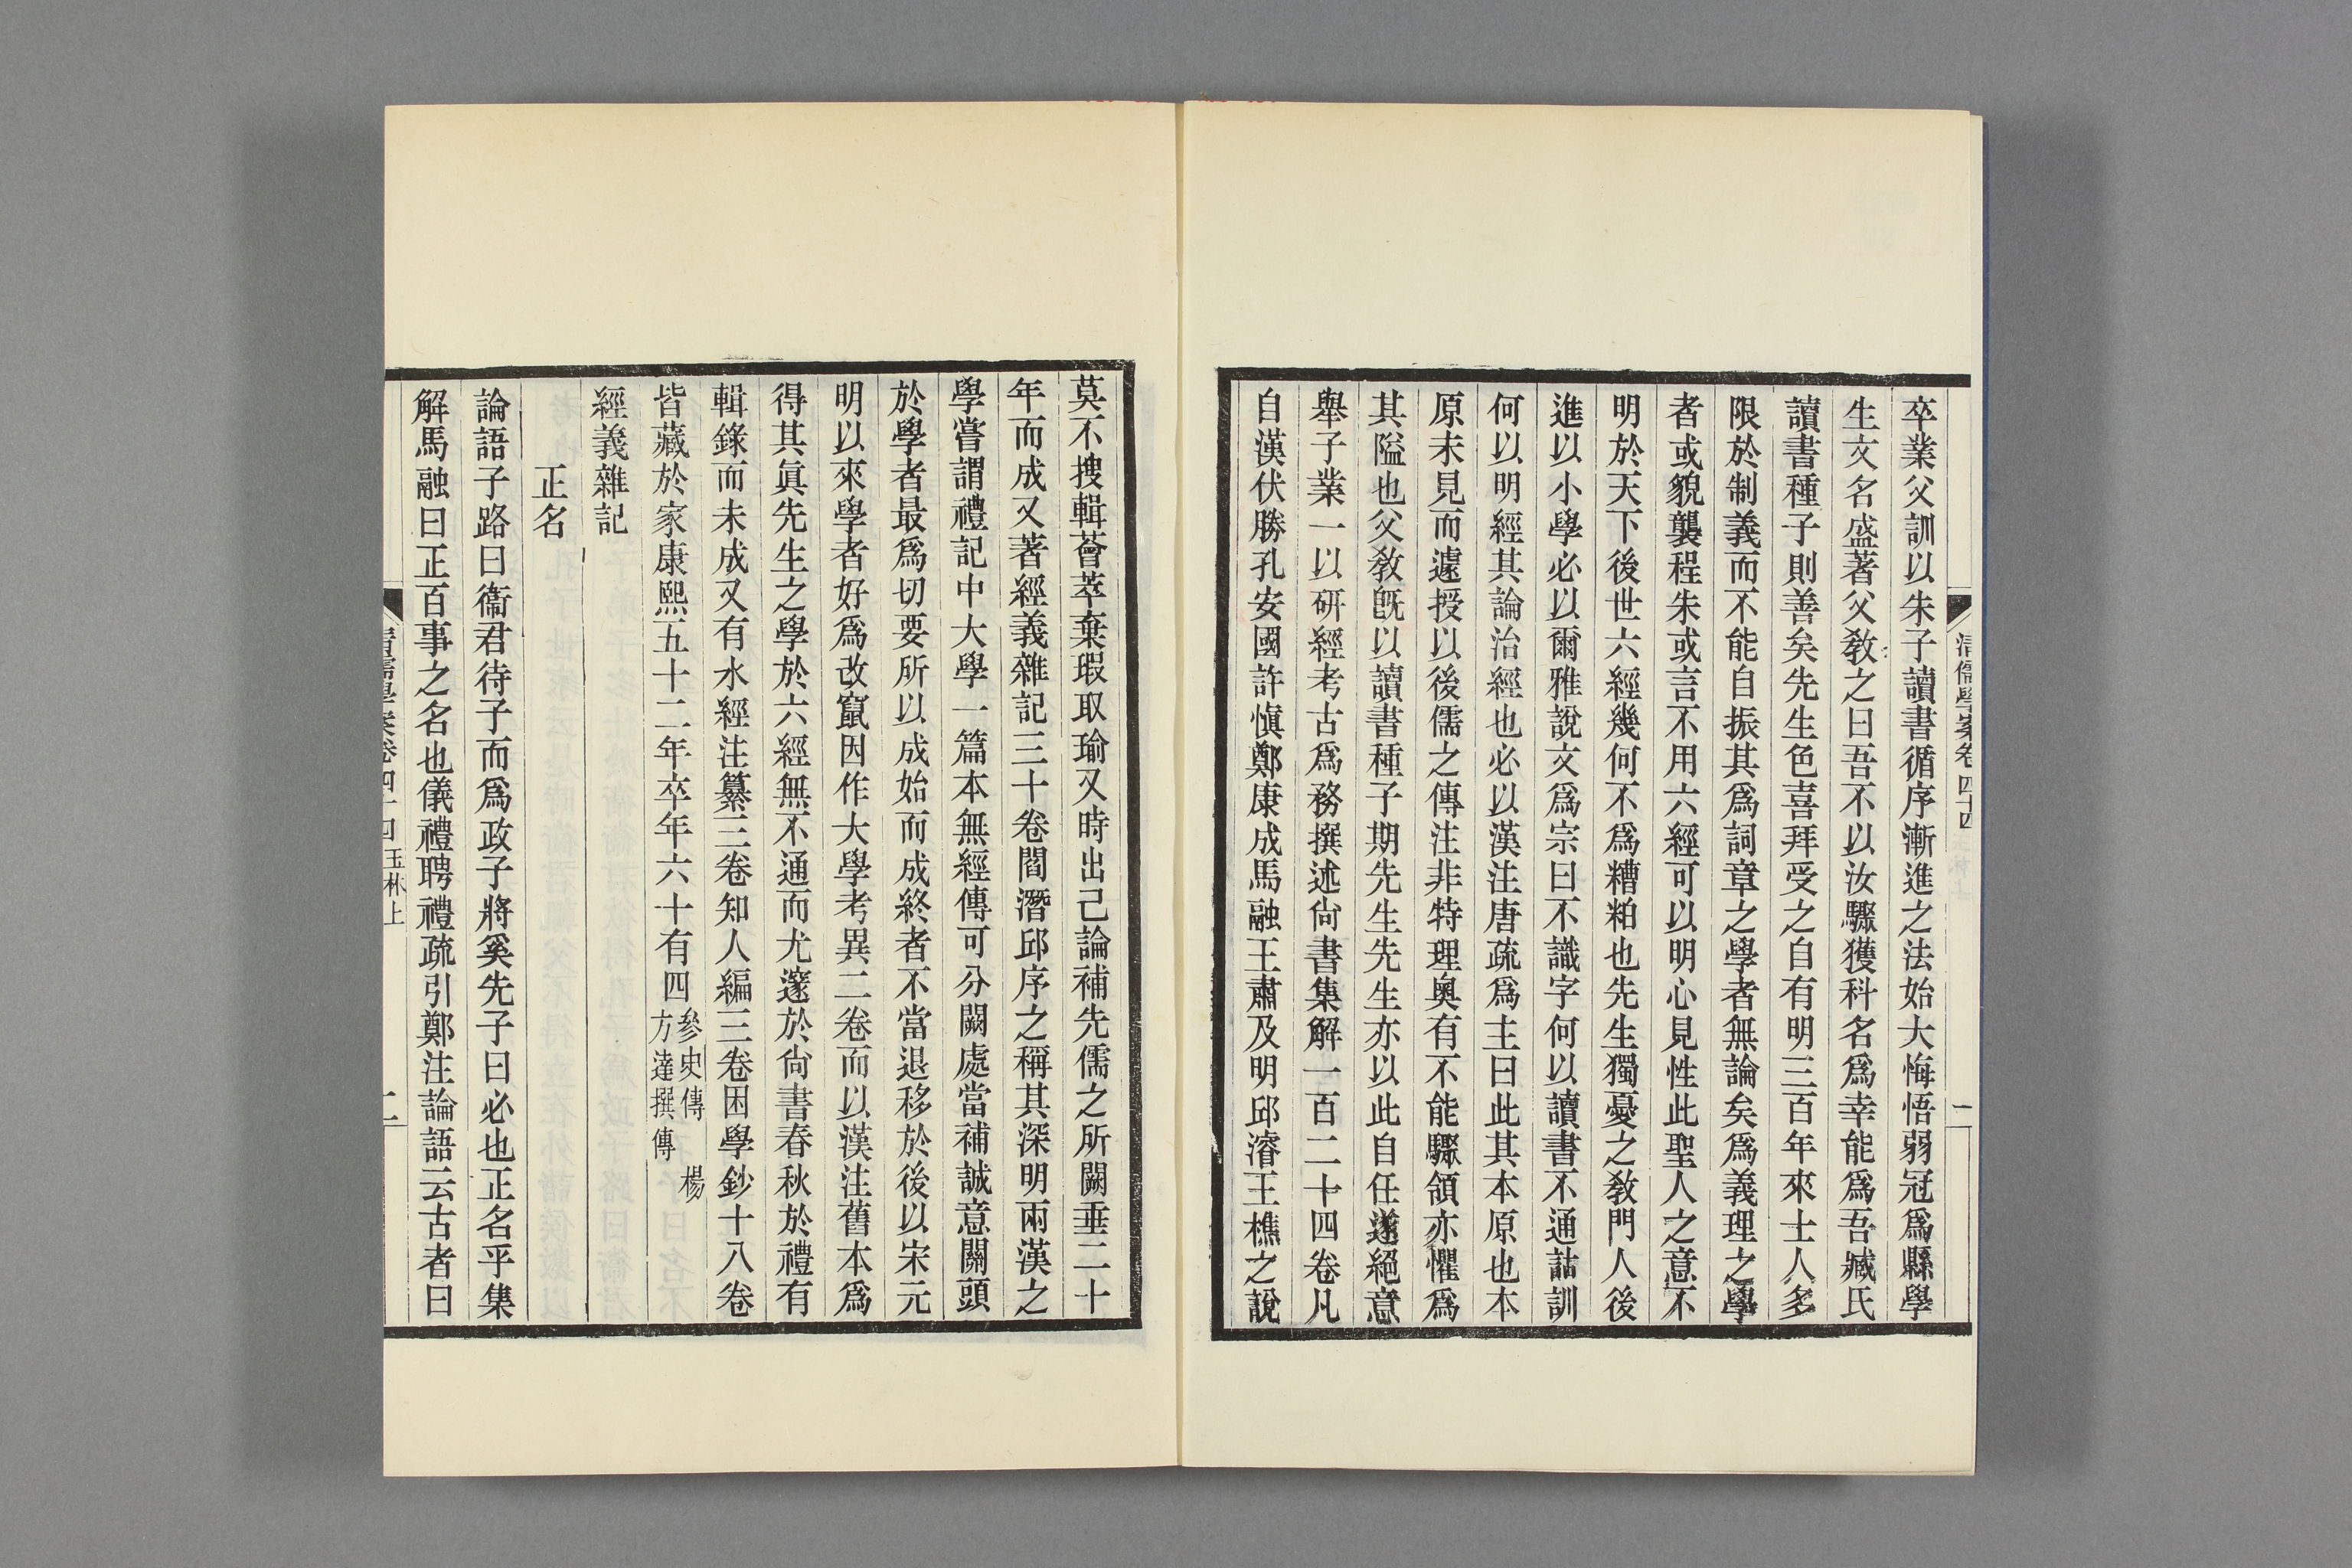 清儒學案卷四十四
二
卒業父訓以朱子讀書循序漸進之法始大悔悟弱冠爲縣學
生文名盛著父敎之曰吾不以汝驟獲科名爲幸能爲吾臧氏
讀書種子則善矣先生色喜拜受之自有明三百年來士人多
限於制義而不能自振其爲詞章之學者無論矣爲義理之學
者或貌襲程朱或言不用六經可以明心見性此聖人之意不
明於天下後世六經幾何不爲糟粕也先生獨憂之敎門人後
進以小學必以爾雅說文爲宗曰不識字何以讀書不通詁訓
何以明經其論治經也必以漢注唐疏爲主曰此其本原也本
原未見而遽授以後儒之傳注非特理奥有不能驟領亦懼爲
其隘也父敎旣以讀書種子期先生先生亦以此自任遂絕意
舉子業一以研經考古爲務撰述尙書集解一百二十四卷凡
自漢伏勝孔安國許愼鄭康成馬融王肅及明邱濬王樵之說
莫不搜輯薈萃棄瑕取瑜又時出己論補先儒之所闕垂二十
年而成又著經義雜記三十卷閻潛邱序之稱其深明兩漢之
學嘗謂禮記中大學一篇本無經傳可分闕處當補誠意關頭
於學者最爲切要所以成始而成終者不當退移於後以宋元
明以來學者好爲改竄因作大學考異二卷而以漢注舊本爲
得其眞先生之學於六經無不通而尤邃於尙書春秋於禮有
輯錄而未成又有水經注纂三卷知人編三卷困學鈔十八卷
皆藏於家康熙五十二年卒年六十有四參史傳 楊
方達撰傳
經義雜記
正名
論語子路曰衞君待子而爲政子將奚先子曰必也正名乎集
解馬融曰正百事之名也儀禮聘禮疏引鄭注論語云古者曰
清儒學案卷四十四 玉林上
二